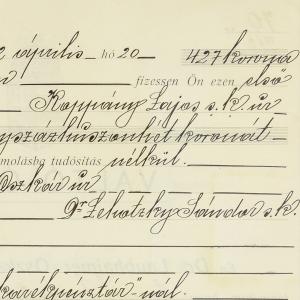 2 április hó 20 427 korona
r fizessen Ön ezen első
Koppány Lajos s. k. úr
yszázhuszonhét koronát
molásba tudósítás nélkül.
Oszkár úr
Dr Lehotzky Sándor s. k.
karékpénztár"-nál.